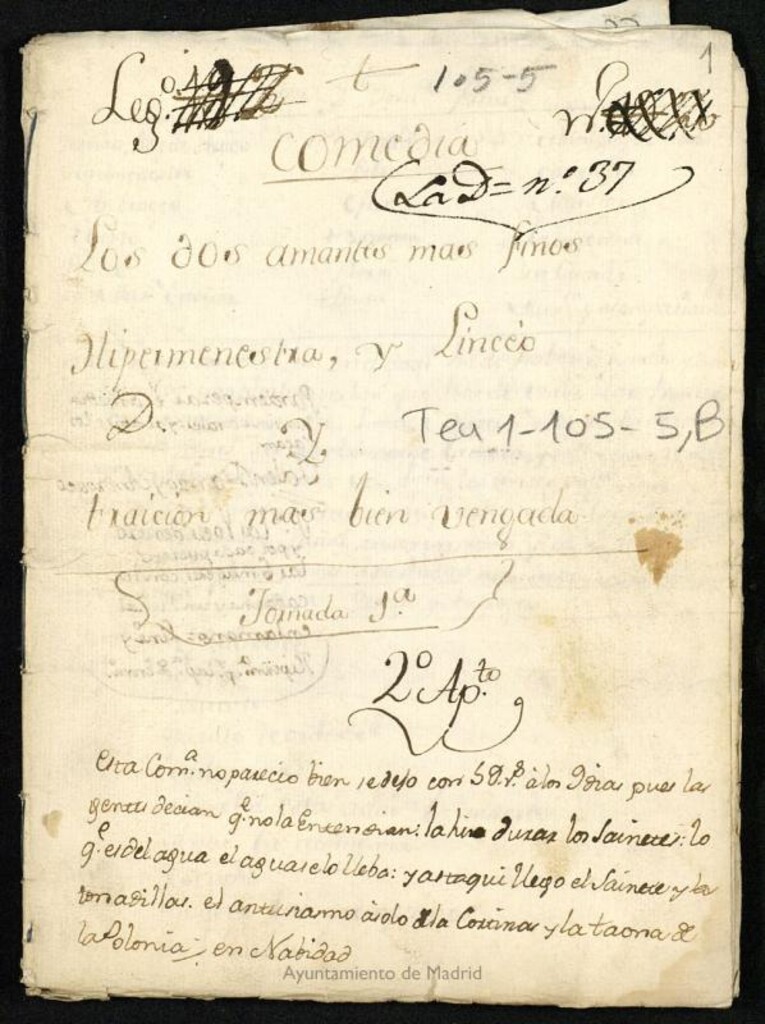 1
Leg.º
t
105-5
Comedia
La D = n.º 37
Los dos amantes mas finos
Hipermenestra, y Linceo
D
Y
Tea 1-105-5,B
traicion mas bien vengada
Jornada 1.ª
2.º Ap.to
esta Com.ª no parecio bien se dejo con 50 r.s à los 9 dias pues las
gentes decian q.e no la Entendian: la hizo durar los Sainetes: lo
q.e es del agua el agua se lo lleba: y asta qui llego el Sainete y la
tonadillas. el antusiasmo à solo a la Cortinas y la taona de
la Polonia; en Nabidad
Ayuntamiento de Madrid